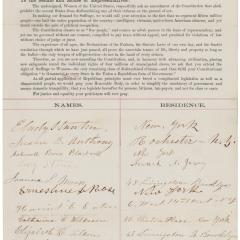 To the Senate and House of Representatives:
The undersigned, Women of the United States, respectfully ask an amendment of the Constitution that shall prohibit the several States from disfranchising any of their citizens on the ground of sex.
In making our demand for Suffrage, we would call your attention to the fact that we represent fifteen million people—one half the entire population of the country—intelligent, virtuous, native-born American citizens; and yet stand outside the pale of political recognition.
The Constitution classes us as "free people," and counts us whole persons in the basis of representation; and yet are we governed without our consent, compelled to pay taxes without appeal, and punished for violations of law without choice of judge or juror.
The experience of all ages, the Declarations of the Fathers, the Statute Laws of our own day, and the fearful revolution through which we have just passed, all prove the uncertain tenure of life, liberty and property so long as the ballot—the only weapon of self-protection—is not in the hand of every citizen.
Therefore, as you are now amending the Constitution, and, in harmony with advancing civilization, placing new safeguards round the individual rights of four millions of emancipated slaves, we ask that you extend the right of Suffrage to Woman—the only remaining class of disfranchised citizens—and thus fulfil your Constitutional obligation "to Guarantee to every State in the Union a Republican form of Government."
As all partial application of Republican principles must ever breed a complicated legislation as well as a discontented people, we would pray your Honorable Body, in order to simplify the machinery of government and ensure domestic tranquillity, that you legislate hereafter for persons, citizens, tax-payers, and not for class or caste.
For justice and equality your petitioners will ever pray.
NAMES. RESIDENCE.
E. Cady Stanton, New York
Susan B. Anthony Rochester - N.Y.
Antoinette Brown Blackwell New York
Lucy Stone Newark N. Jersey
Ernestine L. Rose New York
Harriet E. Eaton 6 West 14th Street N.Y
Catharine C. Wilkeson
Elizabeth R. Tilton 48 Livingston St. Brooklyn